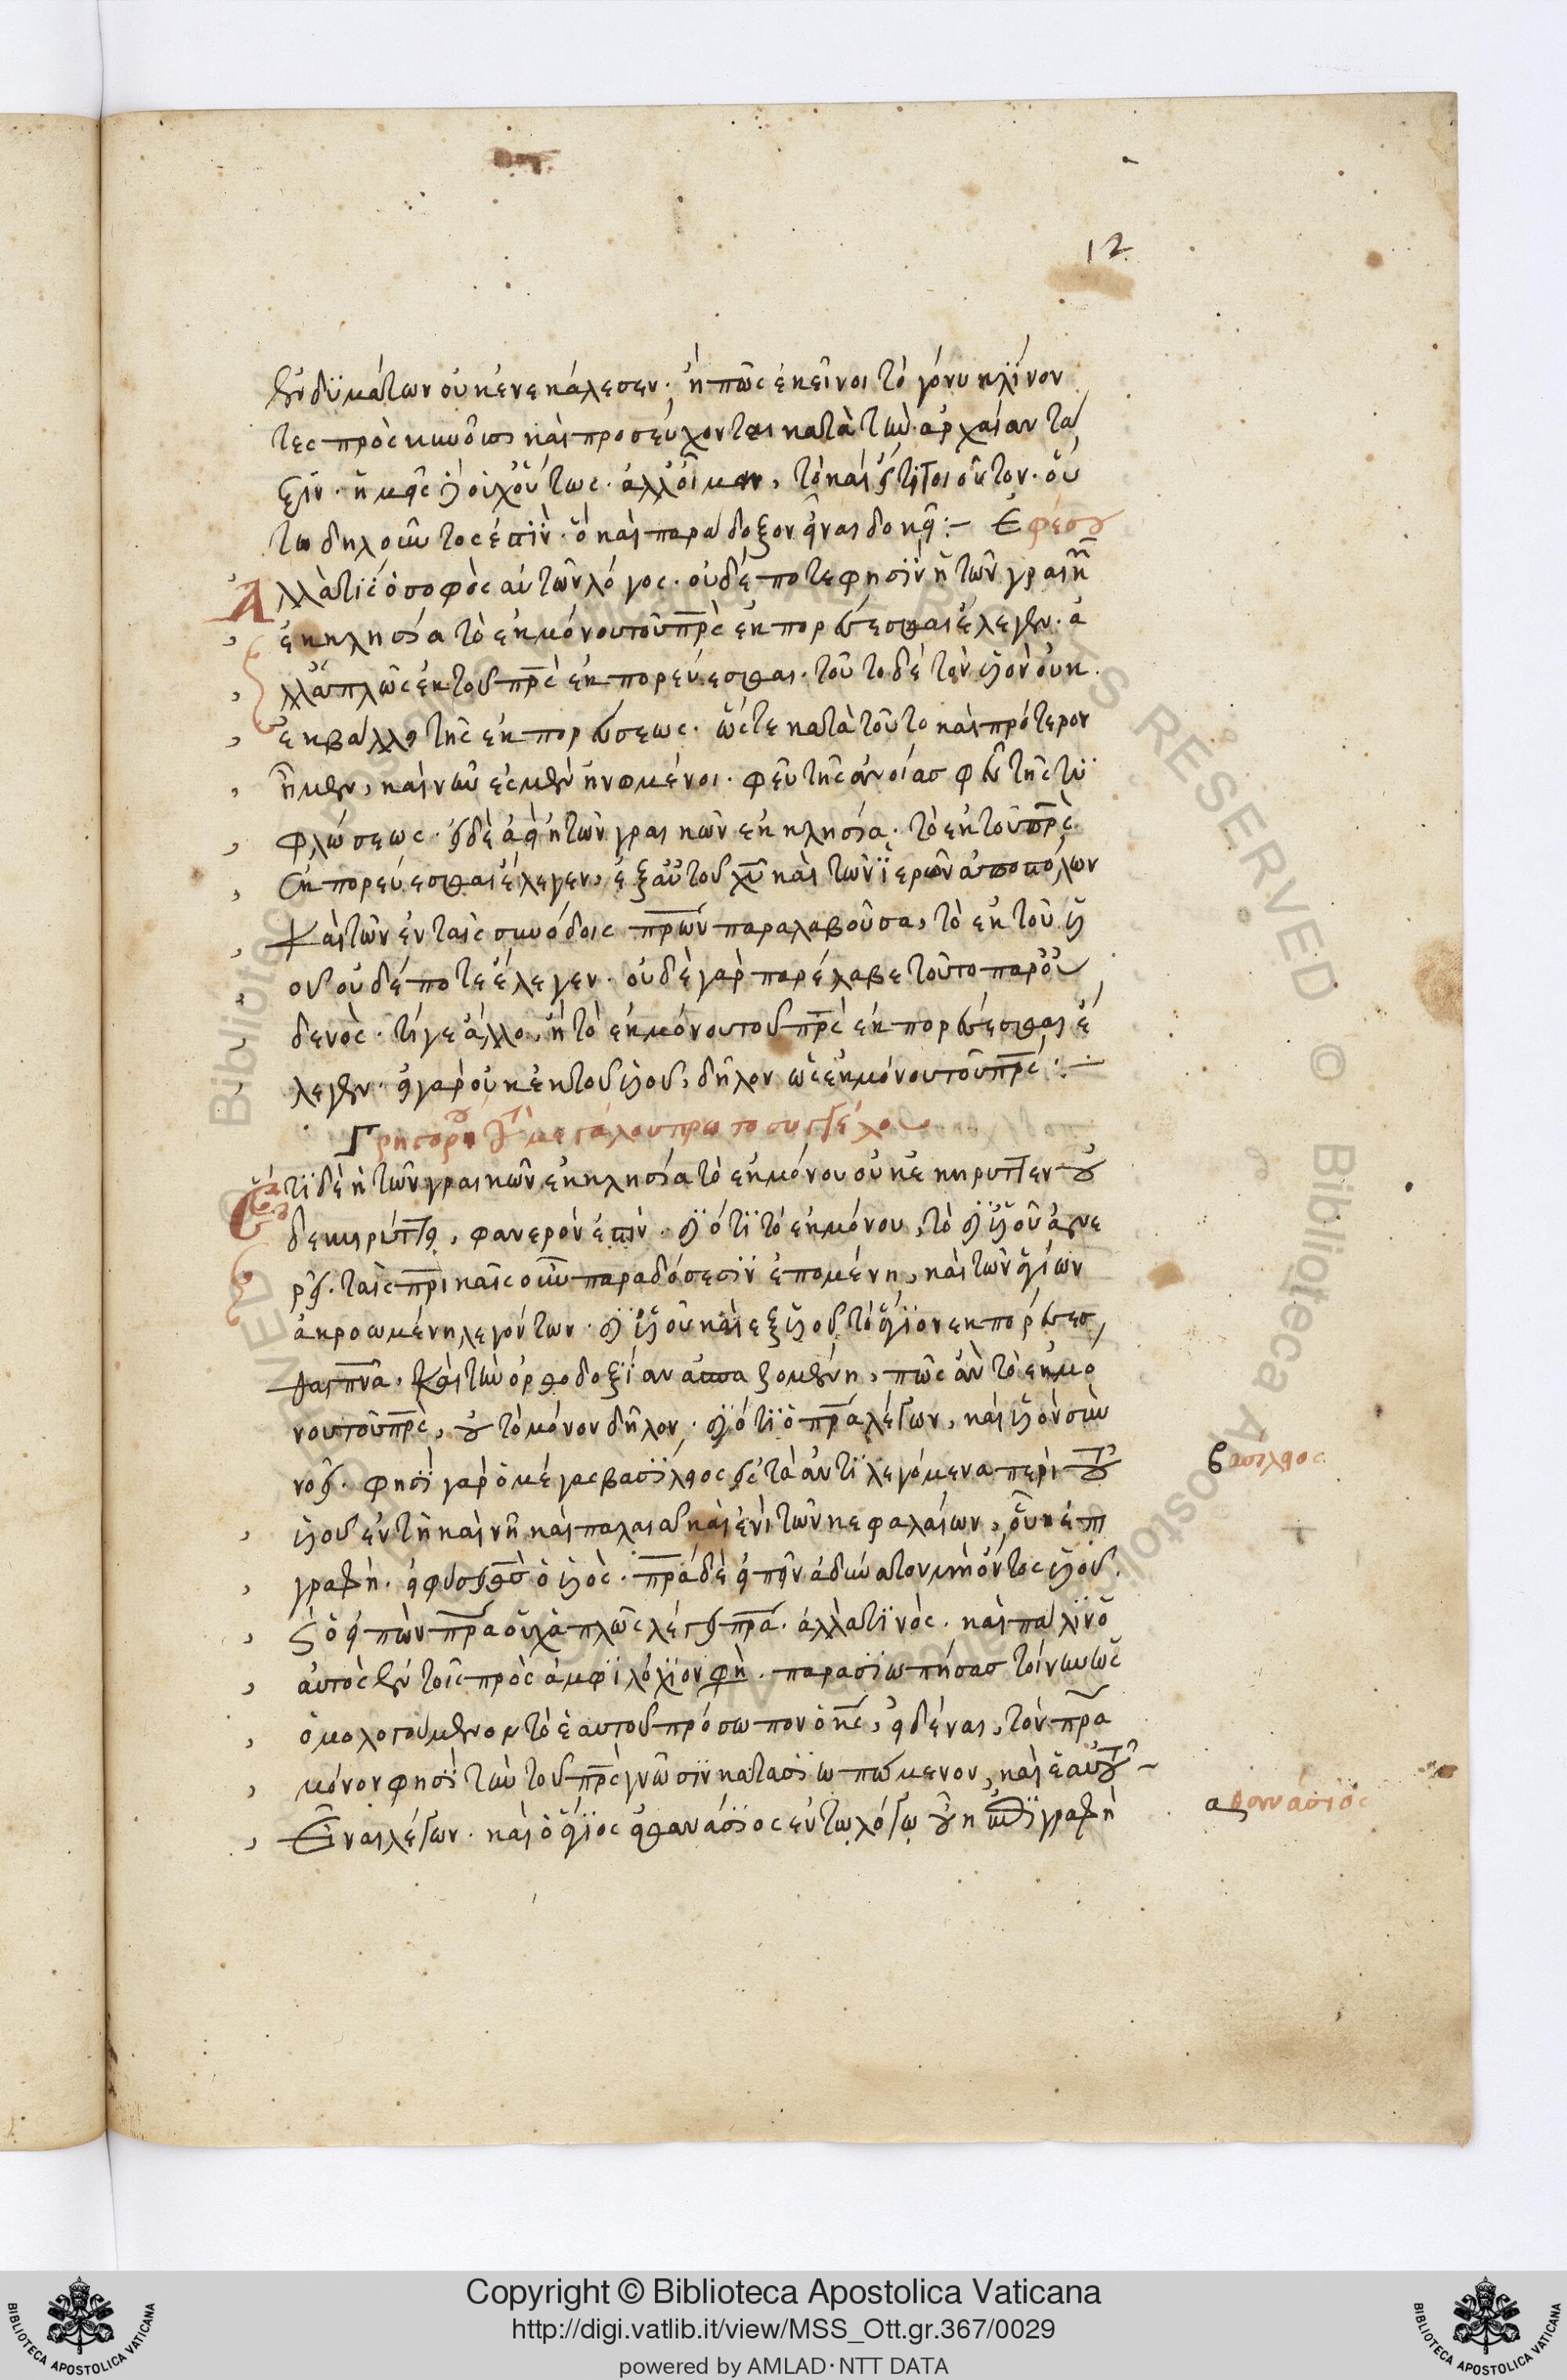 12
ἐνδυμάτων οὐκ ἐνεκάλεσεν· ἢ πῶς ἐκεῖνοι τὸ γόνυ κλίνον
τες προσκυνοῦσι καὶ προσεύχονται κατὰ τὴν ἀρχαίαν τά
ξιν· ἡμεῖς δ' οὐχ οὕτως· ἀλλ' οἶμαι, τὸ καί τι τοιοῦτον· οὐ
τω δηλοῦντος ἐστὶν· ὃ καὶ παράδοξον εἶναι δοκεῖ :– Ἐφέσου
Ἀλλὰ τίς ὁ σοφὸς αὐτῶν λόγος· οὐδέποτε φησὶν ἡ τῶν γραικῶν
ἐκκλησία τὸ ἐκ μόνου τοῦ πρς ἐκπορεύεσθαι ἔλεγεν· ἀ
λλ' ἁπλῶς ἐκ τοῦ πρς ἐκπορεύεσθαι· τοῦτο δὲ τὸν υἱὸν οὐκ
ἐκβάλλει τῆς ἐκπορεύσεως· ὥστε κατὰ τοῦτο καὶ πρότερον
ἦμεν, καὶ νῦν ἐσμὲν ἡνωμένοι· φεῦ τῆς ἀνοίας φεῦ τῆς τυ
φλώσεως· εἰ δὲ ἀεὶ ἡ τῶν γραικῶν ἐκκλησία· τὸ ἐκ τοῦ πρς
ἐκπορεύεσθαι ἔλεγεν, ἐξ αὐτοῦ χυ καὶ τῶν ἱερῶν ἀποστόλων
καὶ τῶν ἐν ταῖς συνόδοις πρων παραλαβοῦσα, τὸ ἐκ τοῦ υἱ
οῦ οὐδέποτε ἔλεγεν· οὐδὲ γὰρ παρέλαβε τοῦτο παρ' οὐ
δενὸς· τί γε ἄλλο, ἢ τὸ ἐκ μόνου τοῦ πρς ἐκπορεύεσθαι ἔ
λεγεν· εἰ γὰρ οὐκ ἐκ τοῦ υἱοῦ, δῆλον ὡς ἐκ μόνου τοῦ πρς :–
Γρηγορίου τοῦ μεγάλου πρωτοσυγκέλου
Ὅτι δὲ ἡ τῶν γραικῶν ἐκκλησία τὸ ἐκ μόνου οὐκ ἐκήρυττεν οὐ
δὲ κηρύττει, φανερόν ἐστιν· διότι τὸ ἐκ μόνου, τὸ δι' υἱοῦ ἀναι
ρεῖ· ταῖς πρικαῖς οὖν παραδόσεσιν ἑπομένη, καὶ τῶν ἁγίων
ἀκροωμένη λεγόντων· δι' υἱοῦ καὶ ἐξ υἱοῦ τὸ ἅγιον ἐκπορεύεσ
θαι πνα· καὶ τὴν ὀρθοδοξίαν ἀσπαζομένη, πῶς ἂν τὸ ἐκ μό
νου τοῦ πρς, οὐ τὸ μόνον δῆλον· διότι ὁ πρα λέγων, καὶ υἱὸν συν
νοεῖ· φησὶ γὰρ ὁ μέγας βασίλειος εἰς τὰ ἀντιλεγόμενα περὶ τοῦ
υἱοῦ ἐν τῇ καινῇ καὶ παλαιᾷ καὶ ἑνὶ τῶν κεφαλαίων, οὗ ἡ ἐπι
γραφὴ· εἰ φύσει θσ ὁ υἱὸς· πρα δὲ εἰπεῖν ἀδύνατον μὴ ὄντος υἱοῦ·
ὁ εἰπὼν πρα οὐχ ἁπλῶς λέγει πρα· ἀλλὰ τινὸς· καὶ πάλιν ὁ
αὐτὸς ἐν τοῖς πρὸς ἀμφιλόχιον φη· παρασιωπήσας τοίνυν ὡς
ὁμολογούμενον τὸ ἑαυτοῦ πρόσωπον ὁ κς, εἰδέναι, τὸν πρα
μόνον φησὶ τὴν τοῦ πρς γνῶσιν κατασιωπώμενον, καὶ ἑαυτοῦ
εἶναι λέγων· καὶ ὁ ἅγιος ἀθανάσιος ἐν τῷ λόγῳ οὗ ἡ ἐπιγραφὴ
βασίλειος
αθανάσιος
Copyright © Biblioteca Apostolica Vaticana
http://digi.vatlib.it/view/MSS_Ott.gr.367/0029
powered by AMLAD·NTT DATA
BIBLIOTECA APOSTOLICA VATICANA
BIBLIOTECA APOSTOLICA VATICANA